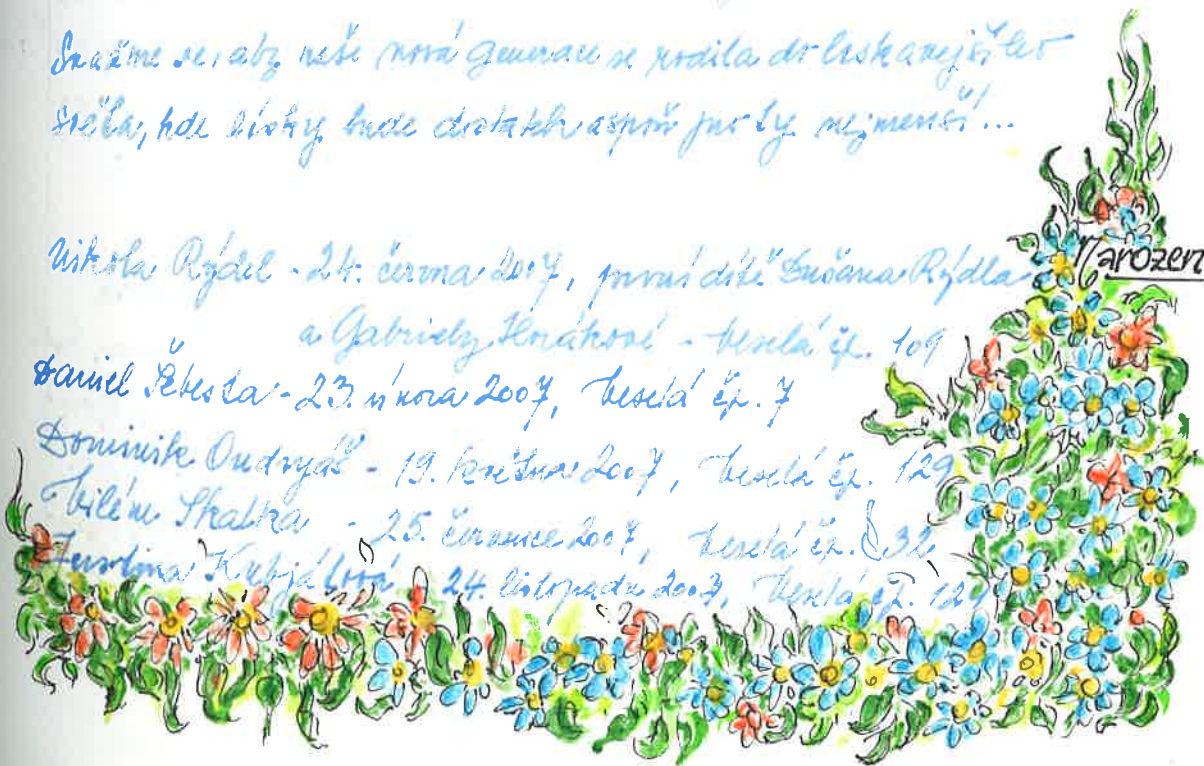 Snažme se, aby naše nová generace se rodila do laskavejšího
světa, kde lásky bude dostatek aspoň pro ty nejmenší...
Narozen
Nikola Rýdel - 24. června 2007, první dítě Dušana Rýdla
a Gabriely Horákové - Veselá čp. 109
Daniel Šebesta - 23. února 2007, Veselá čp. 7
Dominik Ondryáš - 19. května 2007, Veselá čp. 129
Vilém Skalka - 25. července 2007, Veselá čp. 32
24. listopadu 2007, Veselá čp.